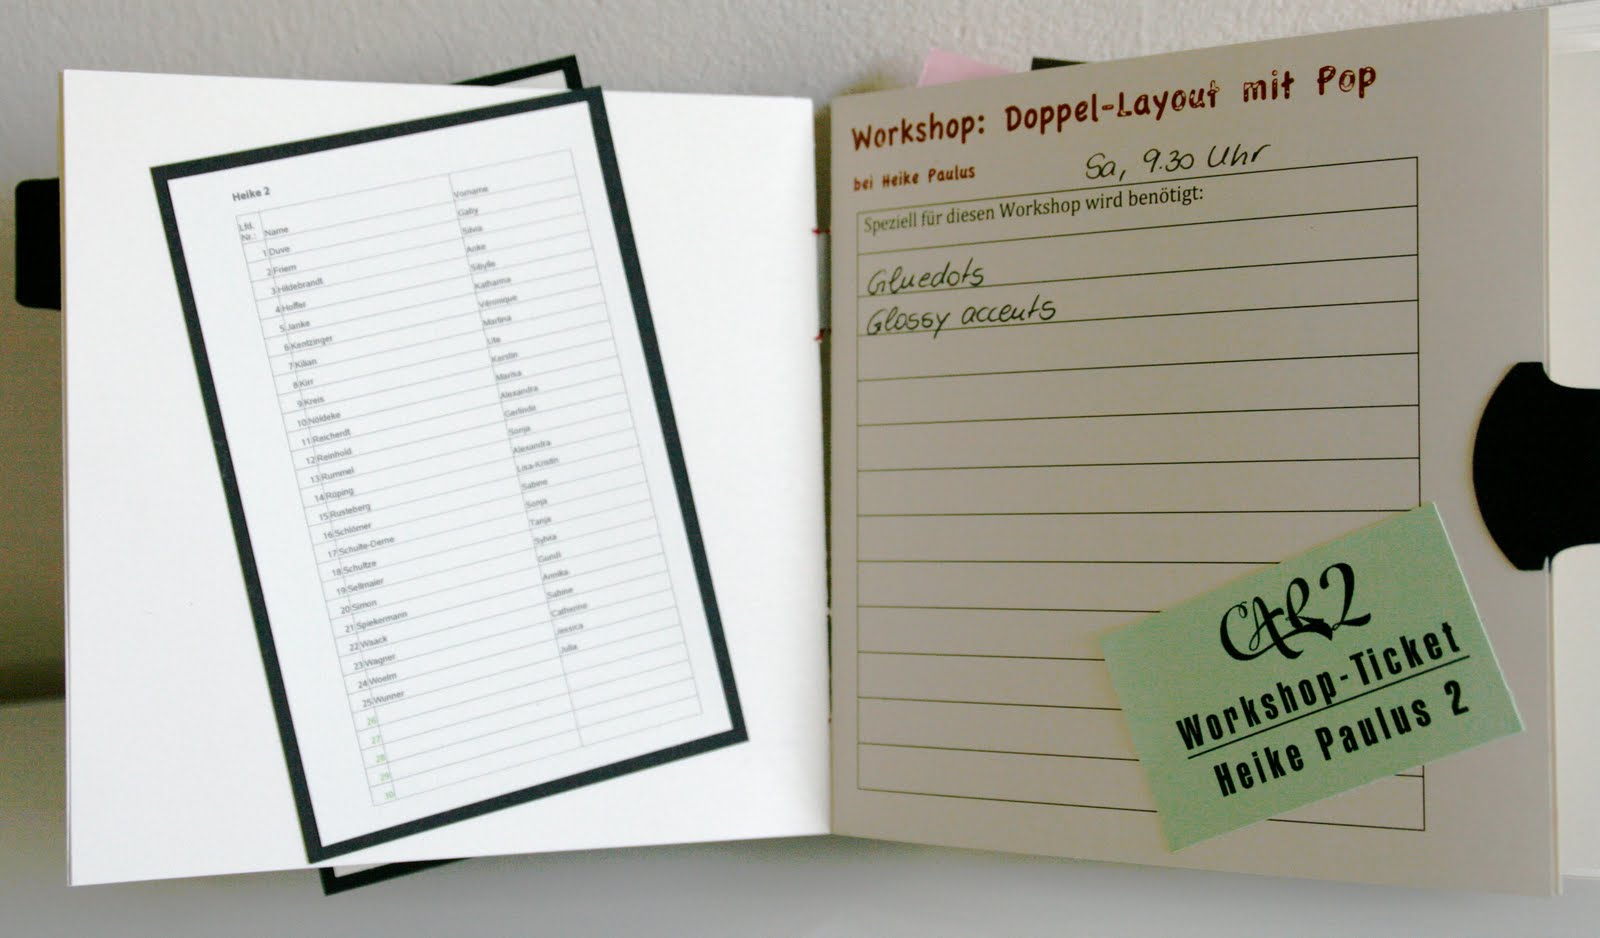 Heike 2
Lfd. Nr.: Name Vorname
1 Duve Gaby
2 Friem Silvia
3 Hildebrandt Anke
4 Hoffer Sibylle
5 Janke Katharina
6 Kentzinger Véronique
7 Kilian Martina
8 Kirr Ute
9 Kreis Kerstin
10 Nöldeke Marika
11 Reicherdt Alexandra
12 Reinhold Gerlinde
13 Rummel Sonja
14 Rüping Alexandra
15 Rusteberg Lisa-Kristin
16 Schlömer Sabine
17 Schulte-Derne Sonja
18 Schultze Tanja
19 Sellmaier Sylvia
20 Simon Gundi
21 Spiekermann Annika
22 Waack Sabine
23 Wagner Catherine
24 Woelm Jessica
25 Wunner Julia
26
27
28
29
30
Workshop: Doppel-Layout mit Pop
bei Heike Paulus Sa, 9.30 Uhr
Speziell für diesen Workshop wird benötigt:
Gluedots
Glossy accents
CAR2
Workshop-Ticket
Heike Paulus 2